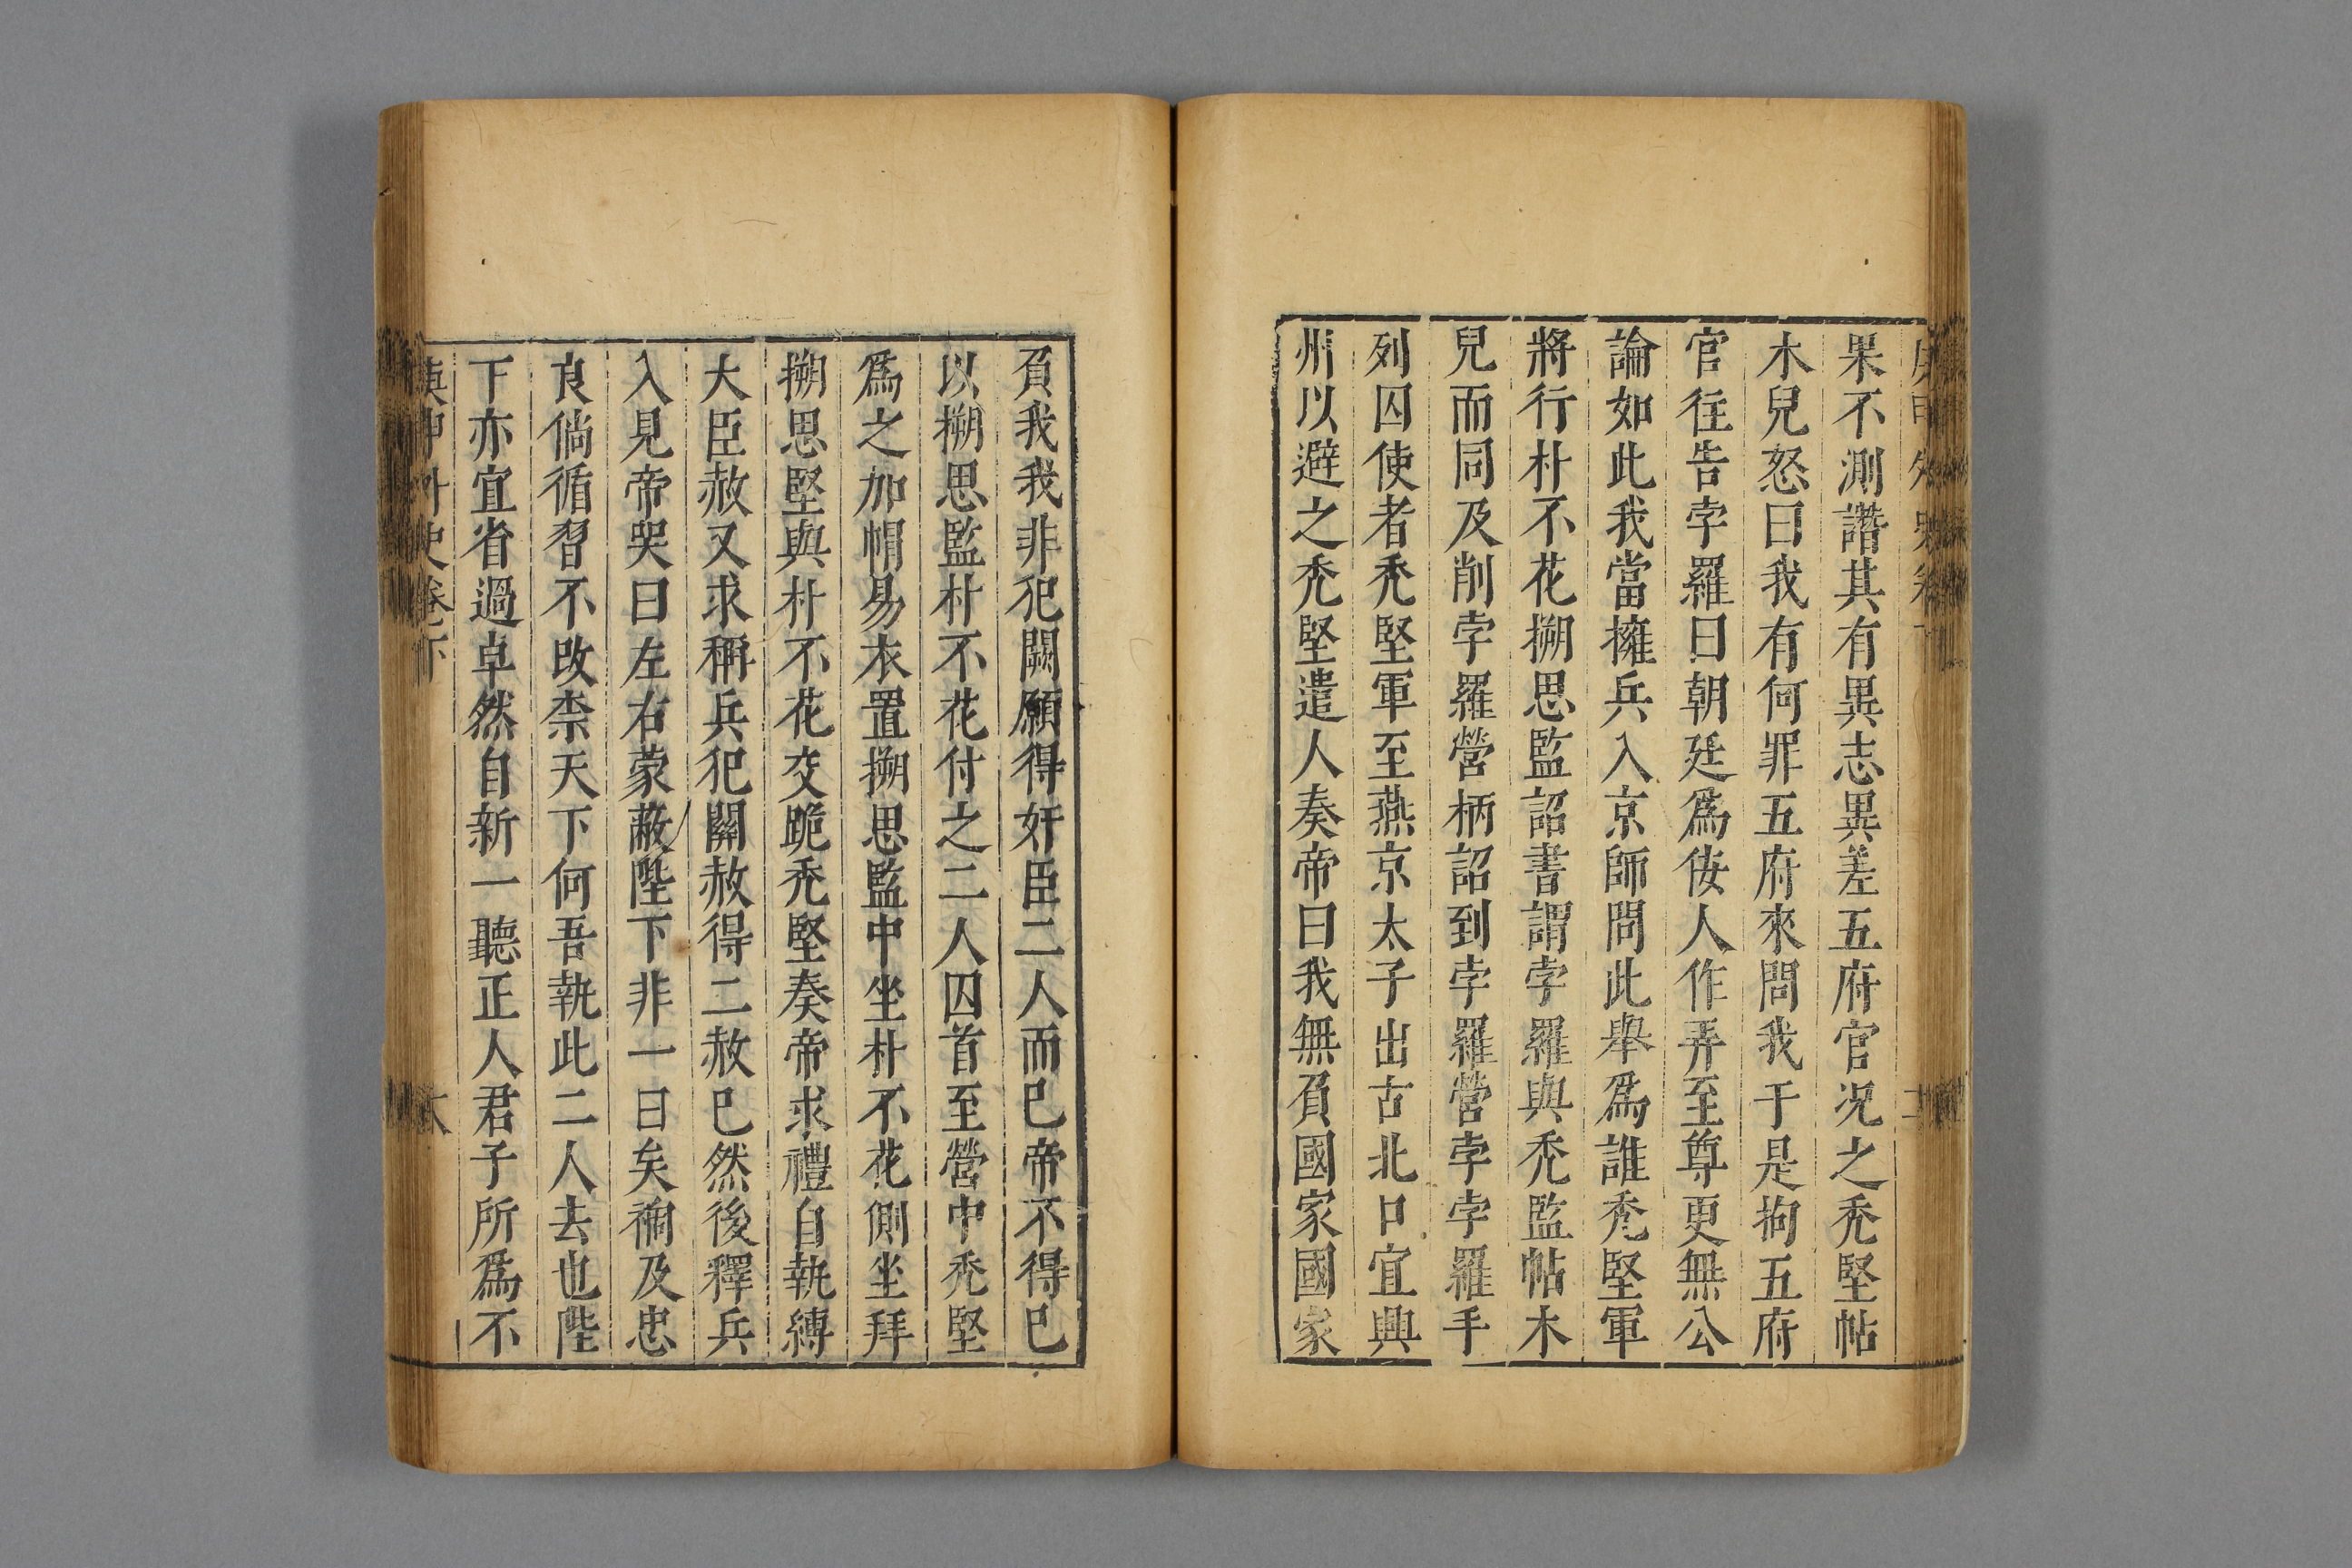 果不測譖其有異志異差五府官况之禿堅帖
木兒怒曰我有何罪五府來問我于是拘五府
官往告孛羅曰朝廷爲佞人作弄至尊更無公
論如此我當擁兵入京師問此舉爲誰禿堅軍
將行朴不花搠思監詔書謂孛羅與禿監帖木
兒而同及削孛羅營柄詔到孛羅營孛孛羅手
列囚使者禿堅軍至燕京太子出古北口宜興
州以避之禿堅遣人奏帝曰我無負國家國家
負我我非犯闕願得奸臣二人而已帝不得已
以搠思監朴不花付之二人囚首至營中禿堅
爲之加帽易衣置搠思監中坐朴不花側坐拜
搠思堅與朴不花交跪禿堅奏帝求禮自執縛
大臣赦又求稱兵犯闕赦得二赦已然後釋兵
入見帝哭曰左右蒙蔽陛下非一日矣禍及忠
良倘循習不改柰天下何吾執此二人去也陛
下亦宜省過卓然自新一聽正人君子所爲不
史卷下